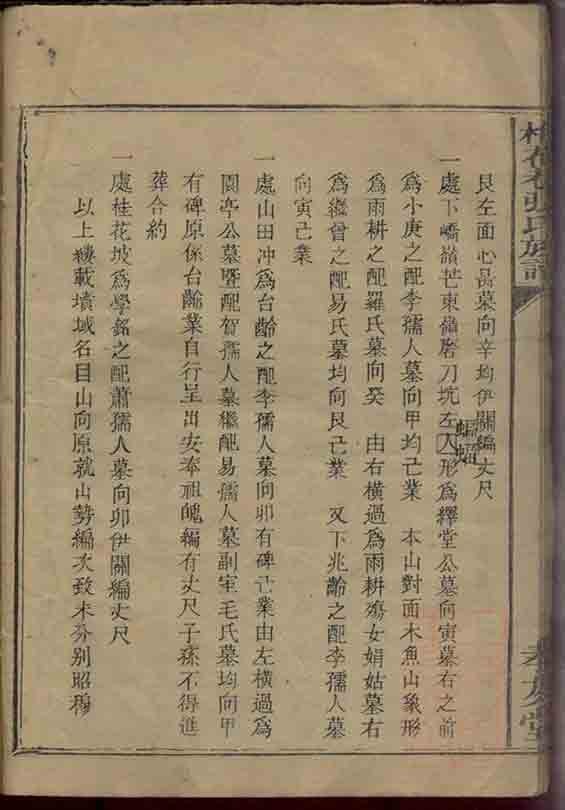 艮左面心嵒墓向辛均伊關編丈尺
一處下嶠嶺芒東嶺磨刀坑左人形為繹堂公墓向寅墓右之前
蝙蝠
為小庚之配李孺人墓向甲均己業 本山對面木魚山象形
為雨耕之配羅氏墓向癸 由右橫過為雨耕殤女娟姑墓右
為繼曾之配易氏墓均向艮己業 又下兆齡之配李孺人墓
向寅己業
一處山田冲為台齡之配李孺人墓向卯有碑己業由左橫過為
園亭公墓暨配賀孺人墓繼配易孺人墓副室毛氏墓均向甲
有碑原係台齡業自行呈出安奉祖魄編有丈尺子孫不得進
葬合約
一處桂花坡為學銘之配蕭孺人墓向卯伊關編丈尺
以上縷載墳域名目山向原就山勢編次致未芬別昭穆
張氏族譜
孝友堂